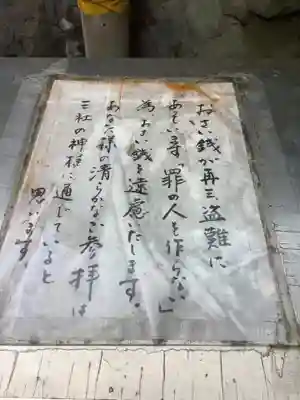 おさい銭が再三盗難に
あそい候「罪の人を作らない」
為、おさい銭を遠慮いたします。
あなた様の清らかなご参拝は
三社の神様に通じていると
思います。